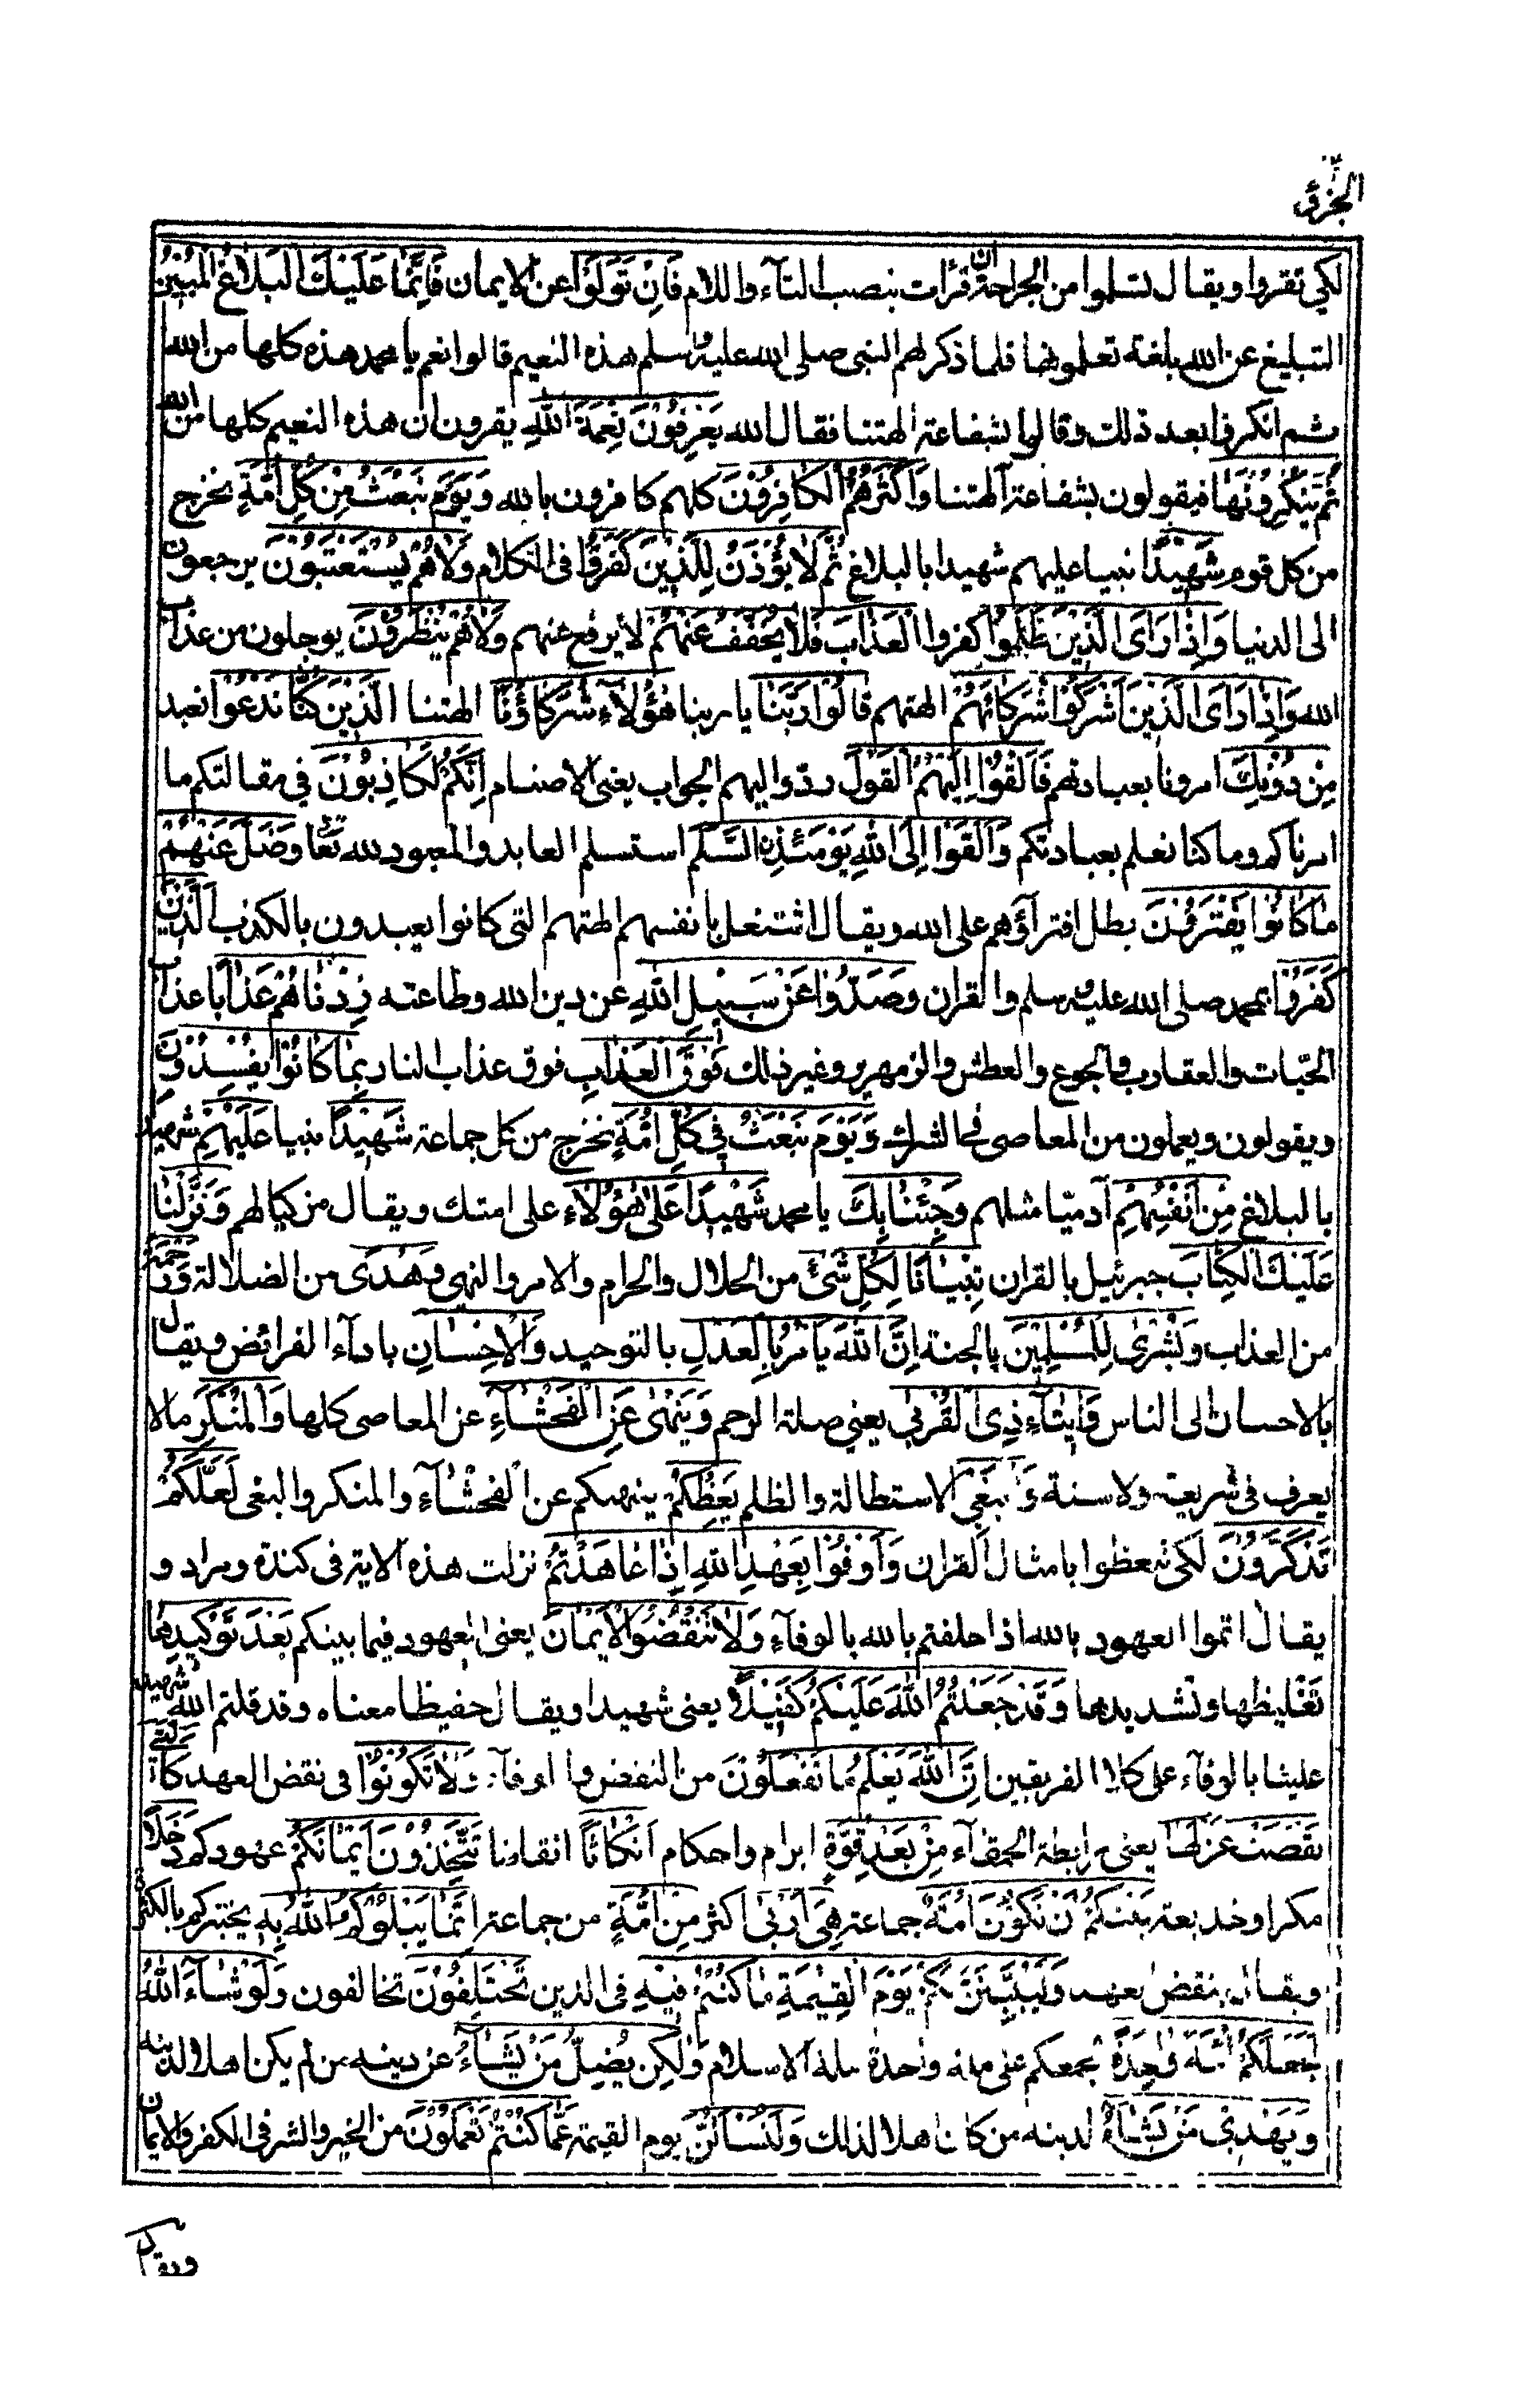 الجزؤ
لكي تقروا ويقال لتسلموا من الجراحة ان قرات بنصب التآء واللام فَاِنْ تَوَلَّوْا عن الايمان فَاِنَّمَا عَلَيْكَ الْبَلَاغُ الْمُبِيْنُ
التبليغ عن الله بلغته تعلمونها فلما ذكر لهم النبى صلى الله عليه وسلم هذه النعيم قالوا نعم يا محمد هذه كلها من الله
ثم انكروا بعد ذلك وقالوا بشفاعة الهتنا فقال الله يَعْرِفُوْنَ نِعْمَةَ اللّٰهِ يقرون ان هذه النعيم كلها من الله
ثُمَّ يُنْكِرُوْنَهَا فيقولون بشفاعة الهتنا وَاَكْثَرُهُمُ الْكَافِرُوْنَ كلهم كافرون بالله وَيَوْمَ نَبْعَثُ مِنْ كُلِّ اُمَّةٍ نخرج
من كل قوم شَهِيْدًا نبيا عليهم شهيدا بالبلاغ ثُمَّ لَا يُؤْذَنُ لِلَّذِيْنَ كَفَرُوْا فى الكلام وَلَا هُمْ يُسْتَعْتَبُوْنَ يرجعون
الى الدنيا وَاِذَا رَاَى الَّذِيْنَ ظَلَمُوْا كفروا الْعَذَابَ فَلَا يُخَفَّفُ عَنْهُمْ لا يرفع عنهم وَلَا هُمْ يُنْظَرُوْنَ يوجلون من عذاب
الله وَاِذَا رَاَى الَّذِيْنَ اَشْرَكُوْا شُرَكَائَهُمْ الهتهم قَالُوْا رَبَّنَا يا ربنا هٰؤُلَآءِ شُرَكَاؤُنَا الهتنا الَّذِيْنَ كُنَّا نَدْعُوْا نعبد
مِنْ دُوْنِكَ امرونا بعبادتهم فَاَلْقَوْا اِلَيْهِمُ الْقَوْلَ ردّوا اليهم الجواب يعنى الاصنام اِنَّكُمْ لَكَاذِبُوْنَ فى مقالتكم ما
امرناكم وما كنا نعلم بعبادتكم وَاَلْقَوْا اِلَى اللّٰهِ يَوْمَئِذِنِ السَّلَمَ استسلم العابد والمعبود لله تعا وَضَلَّ عَنْهُمْ
مَا كَانُوْا يَفْتَرُوْنَ بطل افترآؤهم على الله ويقال اشتغل بانفسهم الهتهم التى كانوا يعبدون بالكذب اَلَّذِيْنَ
كَفَرُوْا بمحمد صلى الله عليه وسلم والقران وَصَدُّوْا عَنْ سَبِيْلِ اللّٰهِ عن دين الله وطاعته زِدْنَاهُمْ عَذَابًا عذاب
الحيّات والعقارب والجوع والعطش والزمهرير وغير ذلك فَوْقَ الْعَذَابِ فوق عذاب النار بِمَا كَانُوْا يُفْسِدُوْنَ
ويقولون ويعملون من المعاصى فى الشرك وَيَوْمَ نَبْعَثُ فِىْ كُلِّ اُمَّةٍ نخرج من كل جماعة شَهِيْدًا نبيا عَلَيْهِمْ شهيدا
بالبلاغ مِنْ اَنْفُسِهِمْ آدميّا مثلهم وَجِئْنَا بِكَ يا محمد شَهِيْدًا عَلٰى هٰؤُلَاءِ على امتك ويقال مزكيا لهم وَنَزَّلْنَا
عَلَيْكَ الْكِتَابَ جبرئيل بالقران تِبْيَانًا لِكُلِّ شَىْءٍ من الحلال والحرام والامر والنهى وَهُدًى من الضلالة وَرَحْمَةً
من العذاب وَبُشْرٰى لِلْمُسْلِمِيْنَ بالجنة اِنَّ اللّٰهَ يَاْمُرُ بِالْعَدْلِ بالتوحيد وَالْاِحْسَانِ بادآء الفرائض ويقال
بالاحسان الى الناس وَاِيْتَآءِ ذِى الْقُرْبٰى يعنى صلة الرحم وَيَنْهٰى عَنِ الْفَحْشَآءِ عن المعاصى كلها وَالْمُنْكَرِ مالا
يعرف فى شريعة ولا سنة وَالْبَغْىِ الاستطالة والظلم يَعِظُكُمْ ينهىكم عن الفحشآء والمنكر والبغى لَعَلَّكُمْ
تَذَكَّرُوْنَ لكى تتعظوا بامثال القران وَاَوْفُوْا بِعَهْدِ اللّٰهِ اِذَا عَاهَدْتُمْ نزلت هذه الاية فى كندة ومراد و
يقال اتموا العهود بالله اذا حلفتم بالله بالوفآء وَلَا تَنْقُضُوا الْاَيْمَانَ يعنى العهود فيما بينكم بَعْدَ تَوْكِيْدِهَا
تغليظها وتشديدها وَقَدْ جَعَلْتُمُ اللّٰهَ عَلَيْكُمْ كَفِيْلًا يعنى شهيدا ويقال حفيظا معناه وقد قلتم الله شهيد
علينا بالوفآء على كلا الفريقين اِنَّ اللّٰهَ يَعْلَمُ مَا تَفْعَلُوْنَ من النقض والوفآء وَلَا تَكُوْنُوْا فى نقض العهد كَالَّتِىْ
نَقَضَتْ غَزْلَهَا يعنى رابطة الحمقآء مِنْ بَعْدِ قُوَّةٍ ابرام واحكام اَنْكَاثًا انقاضا تَتَّخِذُوْنَ اَيْمَانَكُمْ عهودكم دَخَلًا
مكرا وخديعة بَيْنَكُمْ اَنْ تَكُوْنَ اُمَّةٌ جماعة هِىَ اَرْبٰى اكثر مِنْ اُمَّةٍ من جماعة اِنَّمَا يَبْلُوْكُمُ اللّٰهُ بِهٖ يختبركم بالكثرة
ويقال بنقض العهد وَلَيُبَيِّنَنَّ لَكُمْ يَوْمَ الْقِيٰمَةِ مَا كُنْتُمْ فِيْهِ فى الدين تَخْتَلِفُوْنَ تخالفون وَلَوْ شَآءَ اللّٰهُ
لَجَعَلَكُمْ اُمَّةً وَّاحِدَةً لجمعكم على ملة واحدة ملة الاسلام وَلٰكِنْ يُضِلُّ مَنْ يَشَآءُ عن دينه من لم يكن اهلا لدينه
وَيَهْدِىْ مَنْ يَشَآءُ لدينه من كان اهلا لذلك وَلَتُسْاَلُنَّ يوم القيمة عَمَّا كُنْتُمْ تَعْمَلُوْنَ من الخير والشر فى الكفر والايمان
ويقال